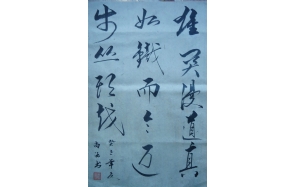 雄关漫道真
如鐵而今迈
步从头越